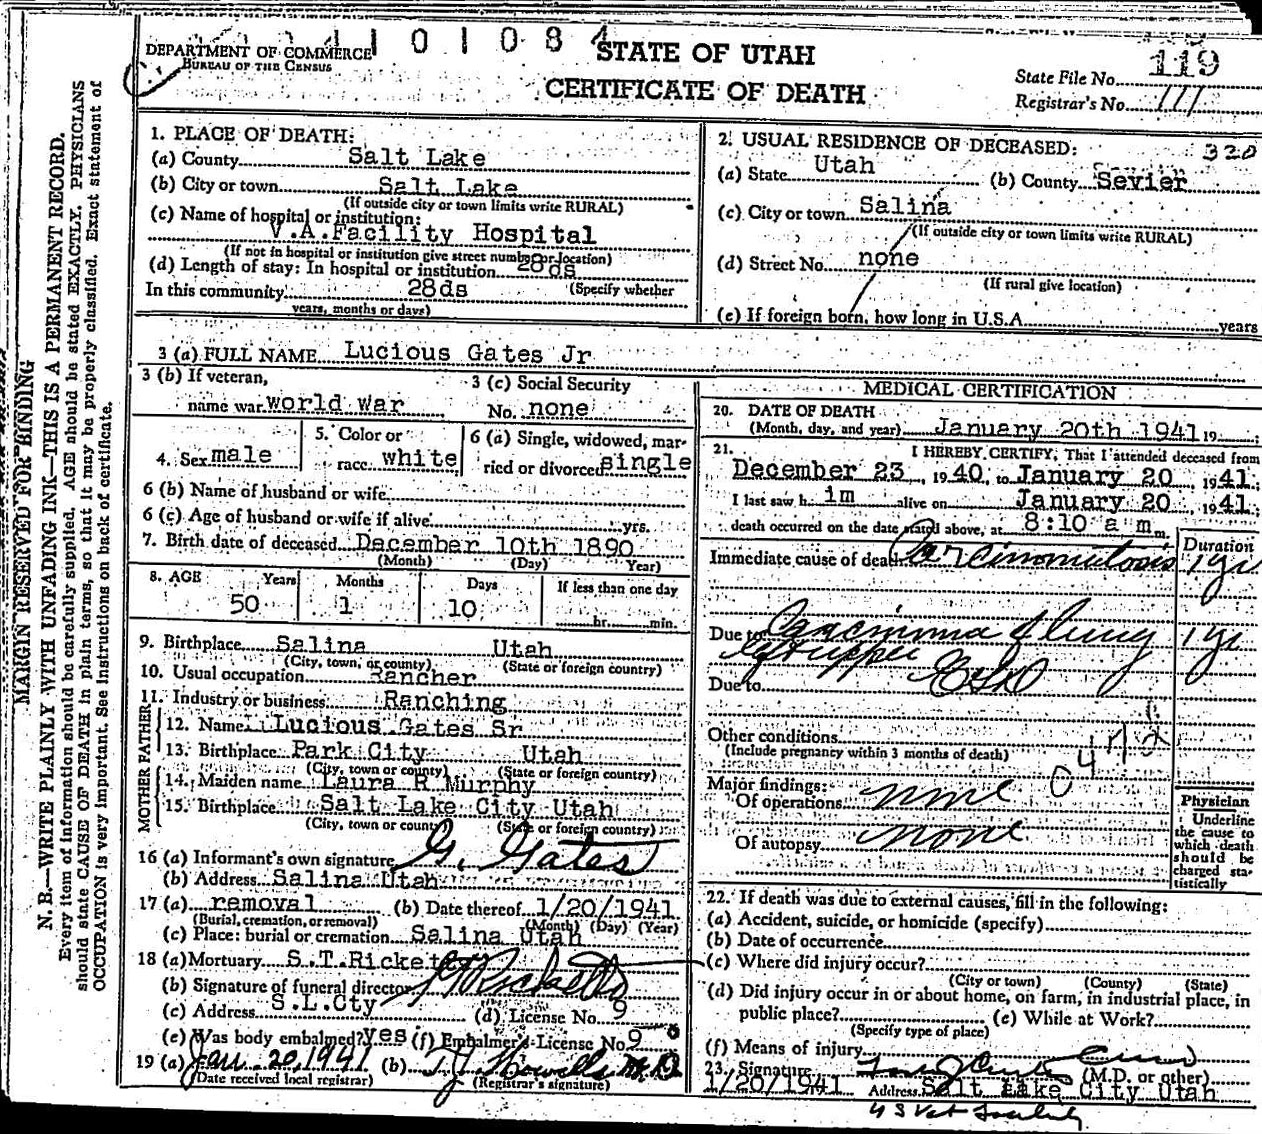 4101084
DEPARTMENT OF COMMERCE
BUREAU OF THE CENSUS
STATE OF UTAH
CERTIFICATE OF DEATH
State File No. 119
Registrar's No. 111
MARGIN RESERVED FOR BINDING
N. B.—WRITE PLAINLY WITH UNFADING INK—THIS IS A PERMANENT RECORD.
Every item of information should be carefully supplied. AGE should be stated EXACTLY. PHYSICIANS
should state CAUSE OF DEATH in plain terms, so that it may be properly classified. Exact statement of
OCCUPATION is very important. See instructions on back of certificate.
1. PLACE OF DEATH:
(a) County Salt Lake
(b) City or town Salt Lake
(If outside city or town limits write RURAL)
(c) Name of hospital or institution:
V.A.Facility Hospital
(If not in hospital or institution give street number or location)
(d) Length of stay: In hospital or institution 28ds
In this community 28ds (Specify whether
years, months or days)
2. USUAL RESIDENCE OF DECEASED: 320
(a) State Utah (b) County Sevier
(c) City or town Salina
(If outside city or town limits write RURAL)
(d) Street No. none
(If rural give location)
(e) If foreign born, how long in U.S.A. years
3 (a) FULL NAME Lucious Gates Jr
3 (b) If veteran,
name war World War
3 (c) Social Security
No. none
4. Sex male
5. Color or
race white
6 (a) Single, widowed, mar-
ried or divorced single
6 (b) Name of husband or wife
6 (c) Age of husband or wife if alive yrs.
7. Birth date of deceased December 10th 1890
(Month) (Day) Year)
8. AGE Years Months Days If less than one day
50 1 10 hr. min.
9. Birthplace Salina Utah
(City, town, or county) (State or foreign country)
10. Usual occupation Rancher
11. Industry or business Ranching
FATHER
12. Name Lucious Gates Sr
13. Birthplace Park City Utah
(City, town or county) (State or foreign country)
MOTHER
14. Maiden name Laura R Murphy
15. Birthplace Salt Lake City Utah
(City, town or county) (State or foreign country)
16 (a) Informant's own signature G. Gates
(b) Address Salina Utah
17 (a) removal (b) Date thereof 1/20/1941
(Burial, cremation, or removal) (Month) (Day) (Year)
(c) Place: burial or cremation Salina Utah
18 (a) Mortuary S.T.Ricketts
(b) Signature of funeral director Ricketts
(c) Address S.L.Cty (d) License No. 9
(e) Was body embalmed? yes (f) Embalmer's License No. 9
19 (a) Jan. 20, 1941 (b) T J Howells M.D
(Date received local registrar) (Registrar's signature)
MEDICAL CERTIFICATION
20. DATE OF DEATH
(Month, day, and year) January 20th 1941 19
21. I HEREBY CERTIFY, That I attended deceased from
December 23, 1940, to January 20, 1941;
I last saw him alive on January 20, 1941;
death occurred on the date stated above, at 8:10 a m.
Duration
Immediate cause of death Carcinomatosis 1 yr
Due to Carcinoma of lung 1 yr
Due to
Other conditions
(Include pregnancy within 3 months of death)
047
Major findings:
Of operations none
Of autopsy none
Physician
Underline
the cause to
which death
should be
charged sta-
tistically
22. If death was due to external causes, fill in the following:
(a) Accident, suicide, or homicide (specify)
(b) Date of occurrence
(c) Where did injury occur?
(City or town) (County) (State)
(d) Did injury occur in or about home, on farm, in industrial place, in
public place? (e) While at Work?
(Specify type of place)
(f) Means of injury
23. Signature (M.D. or other)
1/20/1941 Address Salt Lake City Utah